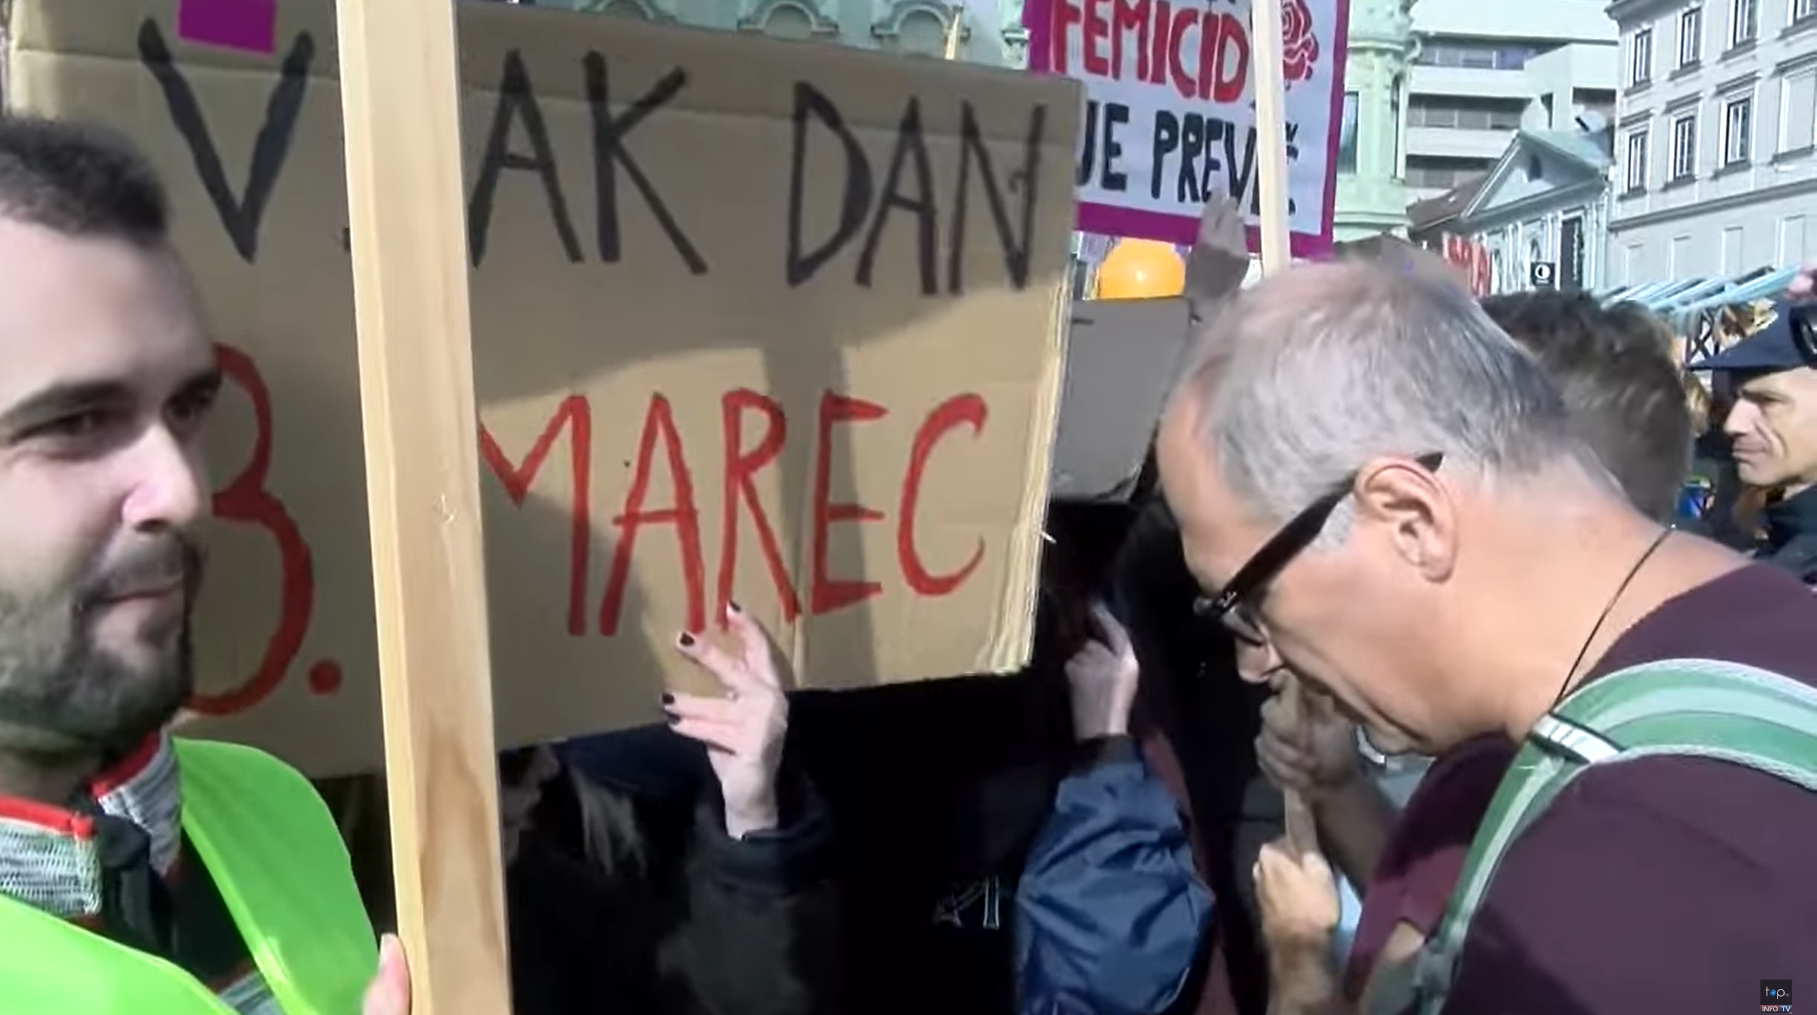 V AK DAN
8. MAREC
FEMICID
JE PREVEČ
top
INFO TV